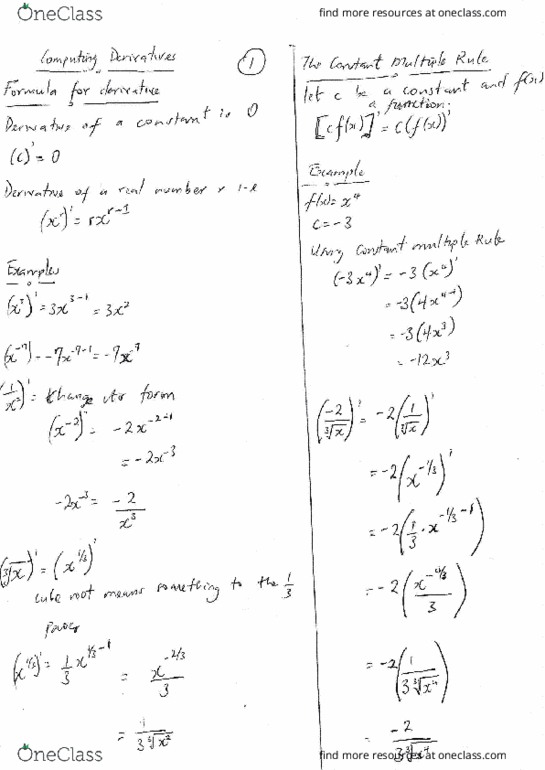 OneClass
find more resources at oneclass.com
Computing Derivatives
1
Formula for derivative
Derivative of a constant is 0
(c)' = 0
Derivative of a real number r i-e
(x^r)' = rx^(r-1)
Examples
(x^3)' = 3x^(3-1) = 3x^2
(x^-7) - -7x^(-7-1) = -7x
(1/x^2)' = Change form
(x^-2)' = -2x^(-2-1)
= -2x^-3
-2x^-3 = -2/x^3
(∛x)' = (x^(1/3))'
cube root means something to the 1/3
power
(x^(1/3))' = 1/3 x^(1/3-1) = x^(-2/3)/3
= 1/(3∛x^2)
The Constant Multiple Rule
let c be a constant and f(x)
a function:
[cf(x)]' = c(f(x))'
Example
f(x) = x^4
c = -3
Using Constant multiple Rule
(-3x^4)' = -3(x^4)'
= -3(4x^(4-1))
= -3(4x^3)
= -12x^3
(-2/∛x)' = -2(1/∛x)'
= -2(x^(-1/3))'
= -2(1/3 · x^(-1/3-1))
= -2(x^(-4/3)/3)
= -2(1/(3∛x^4))
= -2/(3∛x^4)
OneClass
find more resources at oneclass.com